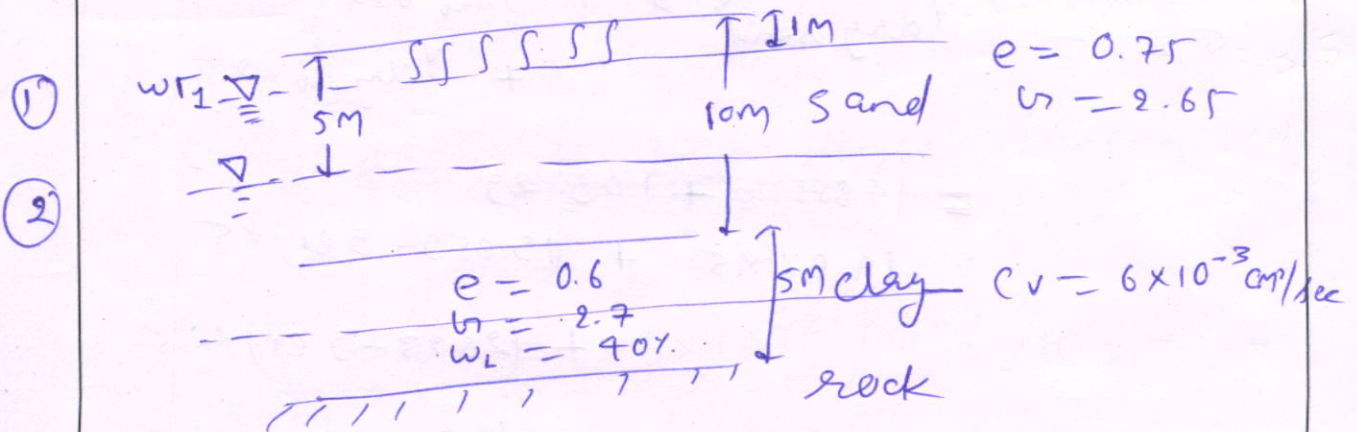 ①
WT1
5M
10m
1M
Sand
e = 0.75
G = 2.65
②
e = 0.6
G = 2.7
WL = 40%.
5M clay
Cv = 6×10⁻³ cm²/sec
rock